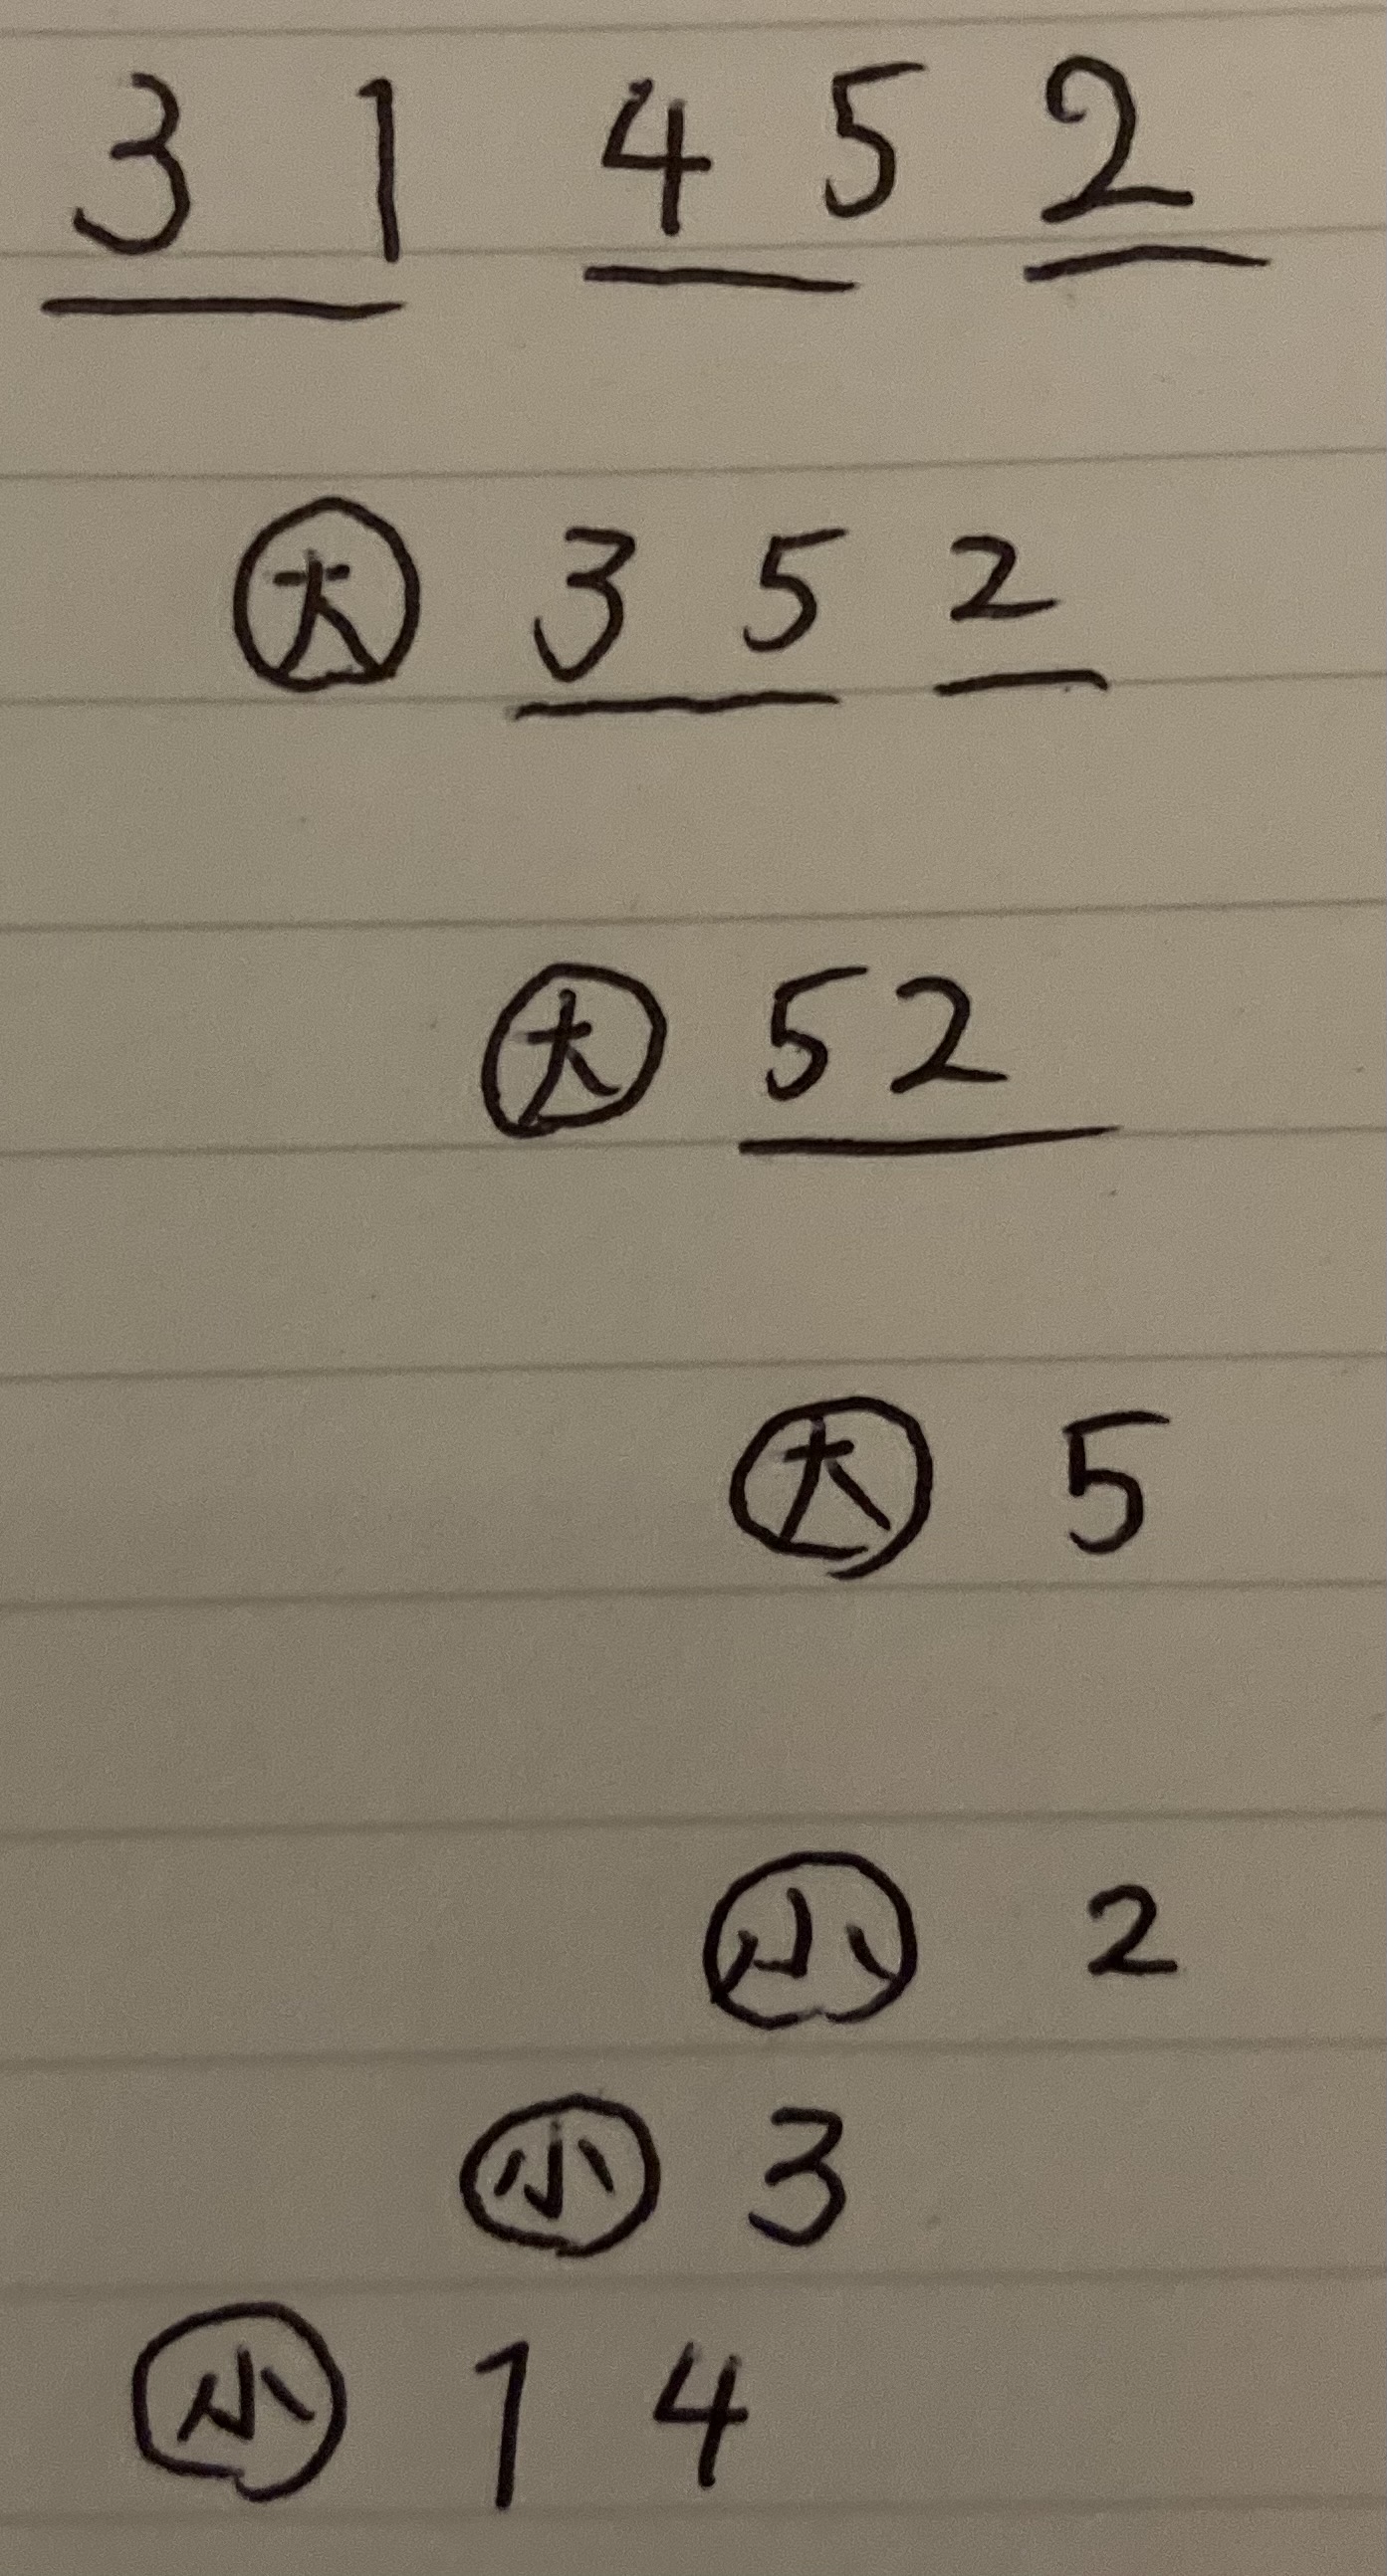 3 1 4 5 2
大 3 5 2
大 5 2
大 5
小 2
小 3
小 1 4